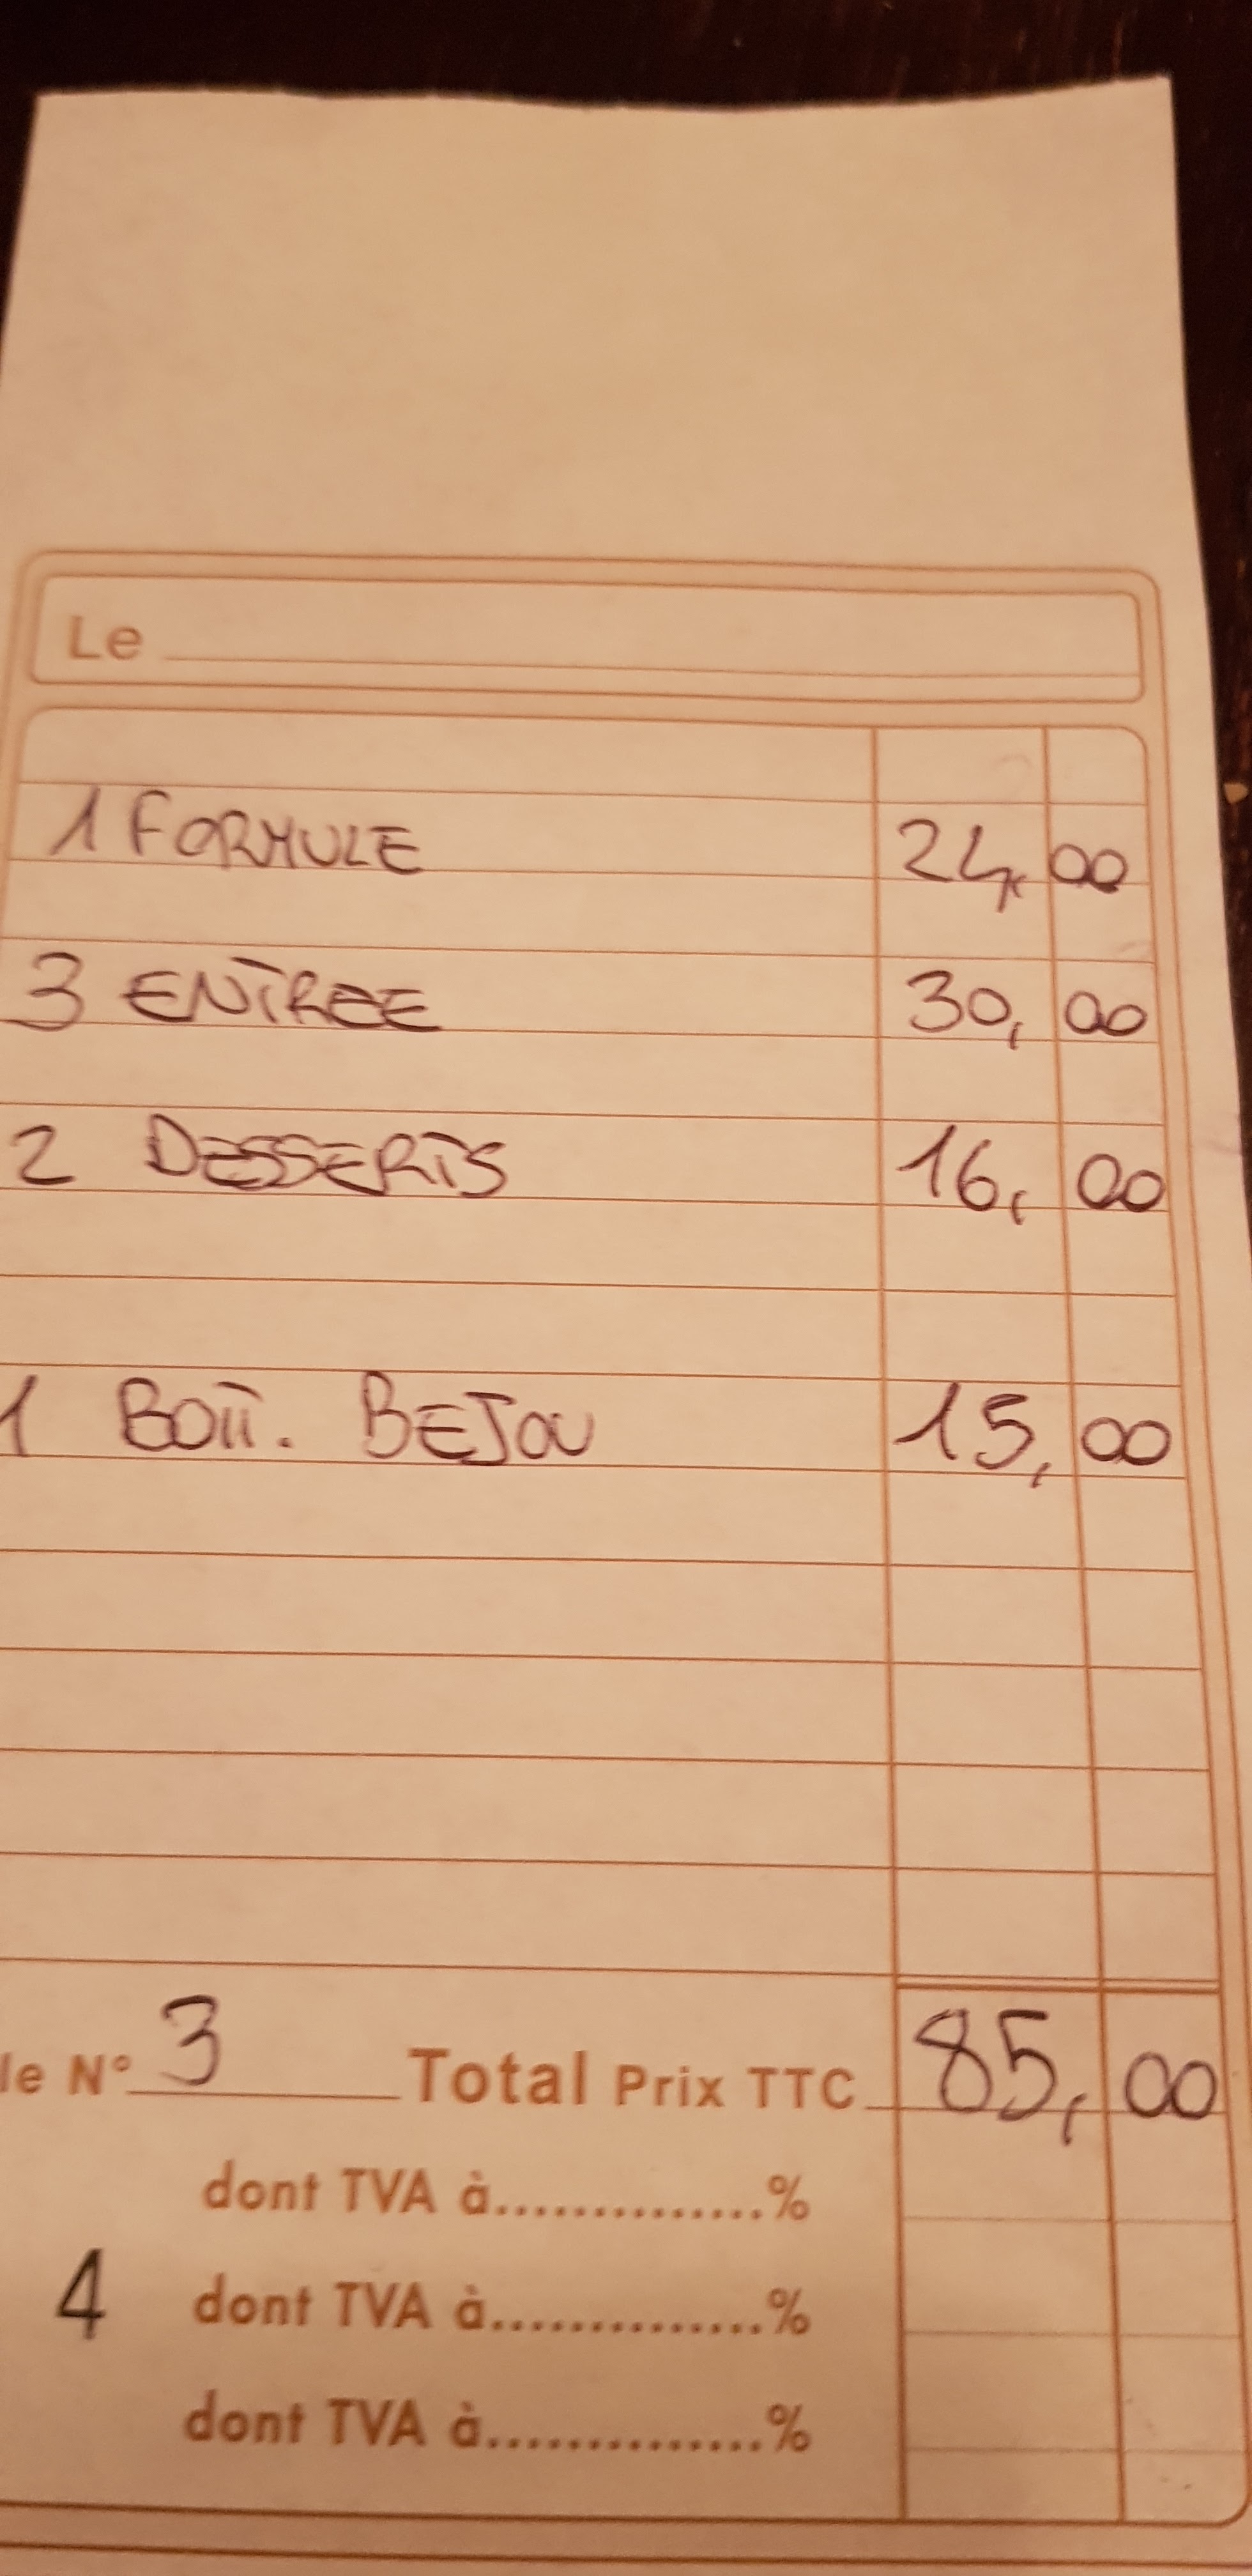 Le
1 FORMULE 24,00
3 ENTREE 30,00
2 DESSERTS 16,00
1 BOTT. BEJOU 15,00
le N° 3 Total Prix TTC 85,00
dont TVA à..............%
4 dont TVA à..............%
dont TVA à..............%